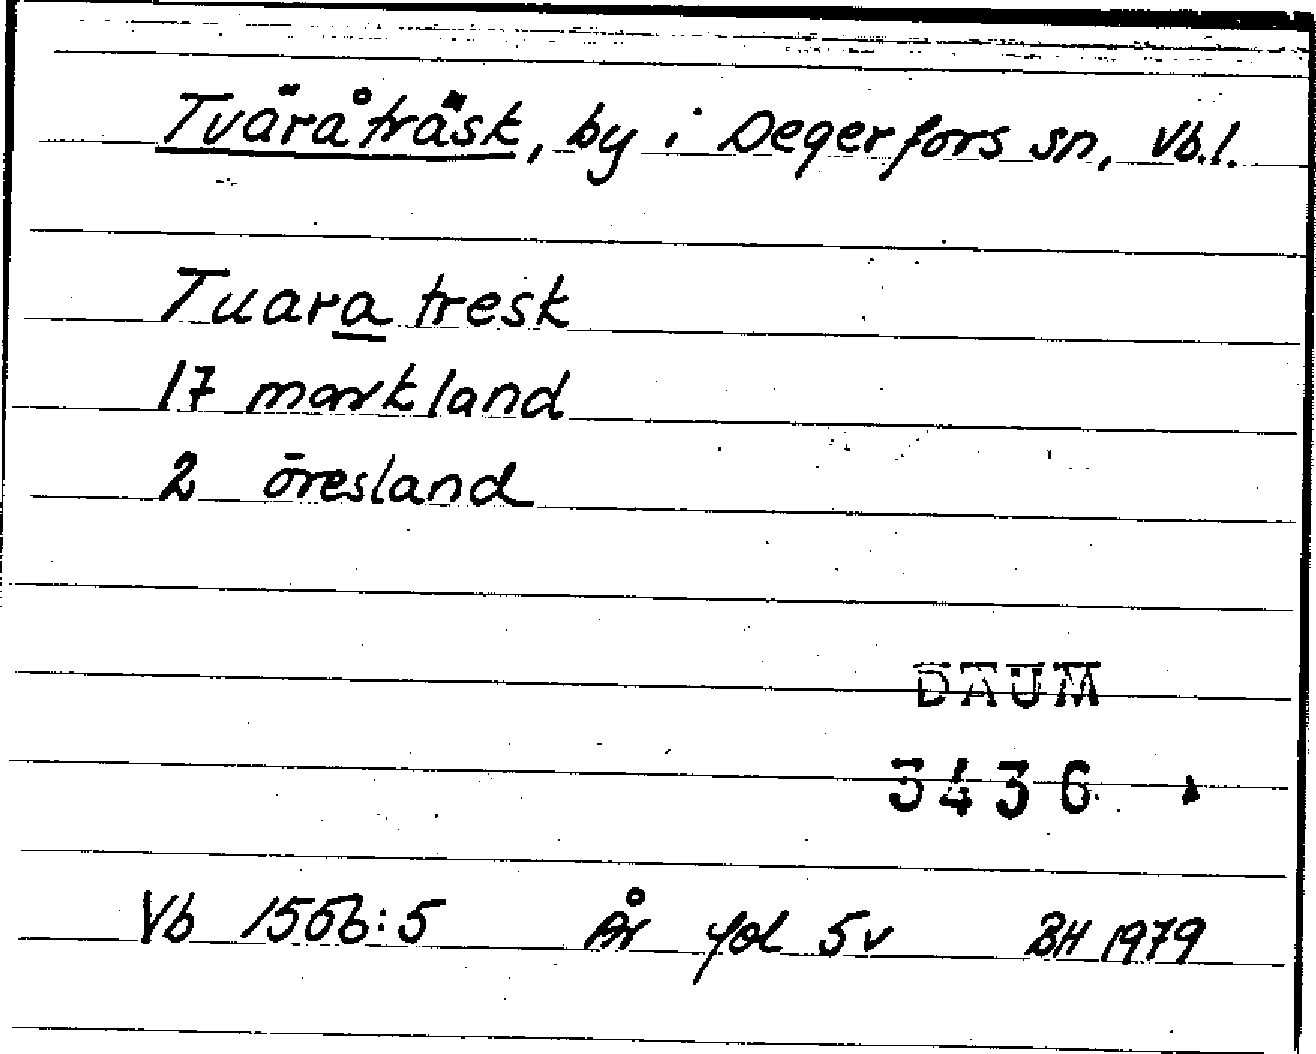 Tväråträsk, by i Degerfors sn, Vb.l.
Tuara tresk
17 markland
2 öresland
DAUM
3436
Vb 1556:5 År fol 5v BH 1979